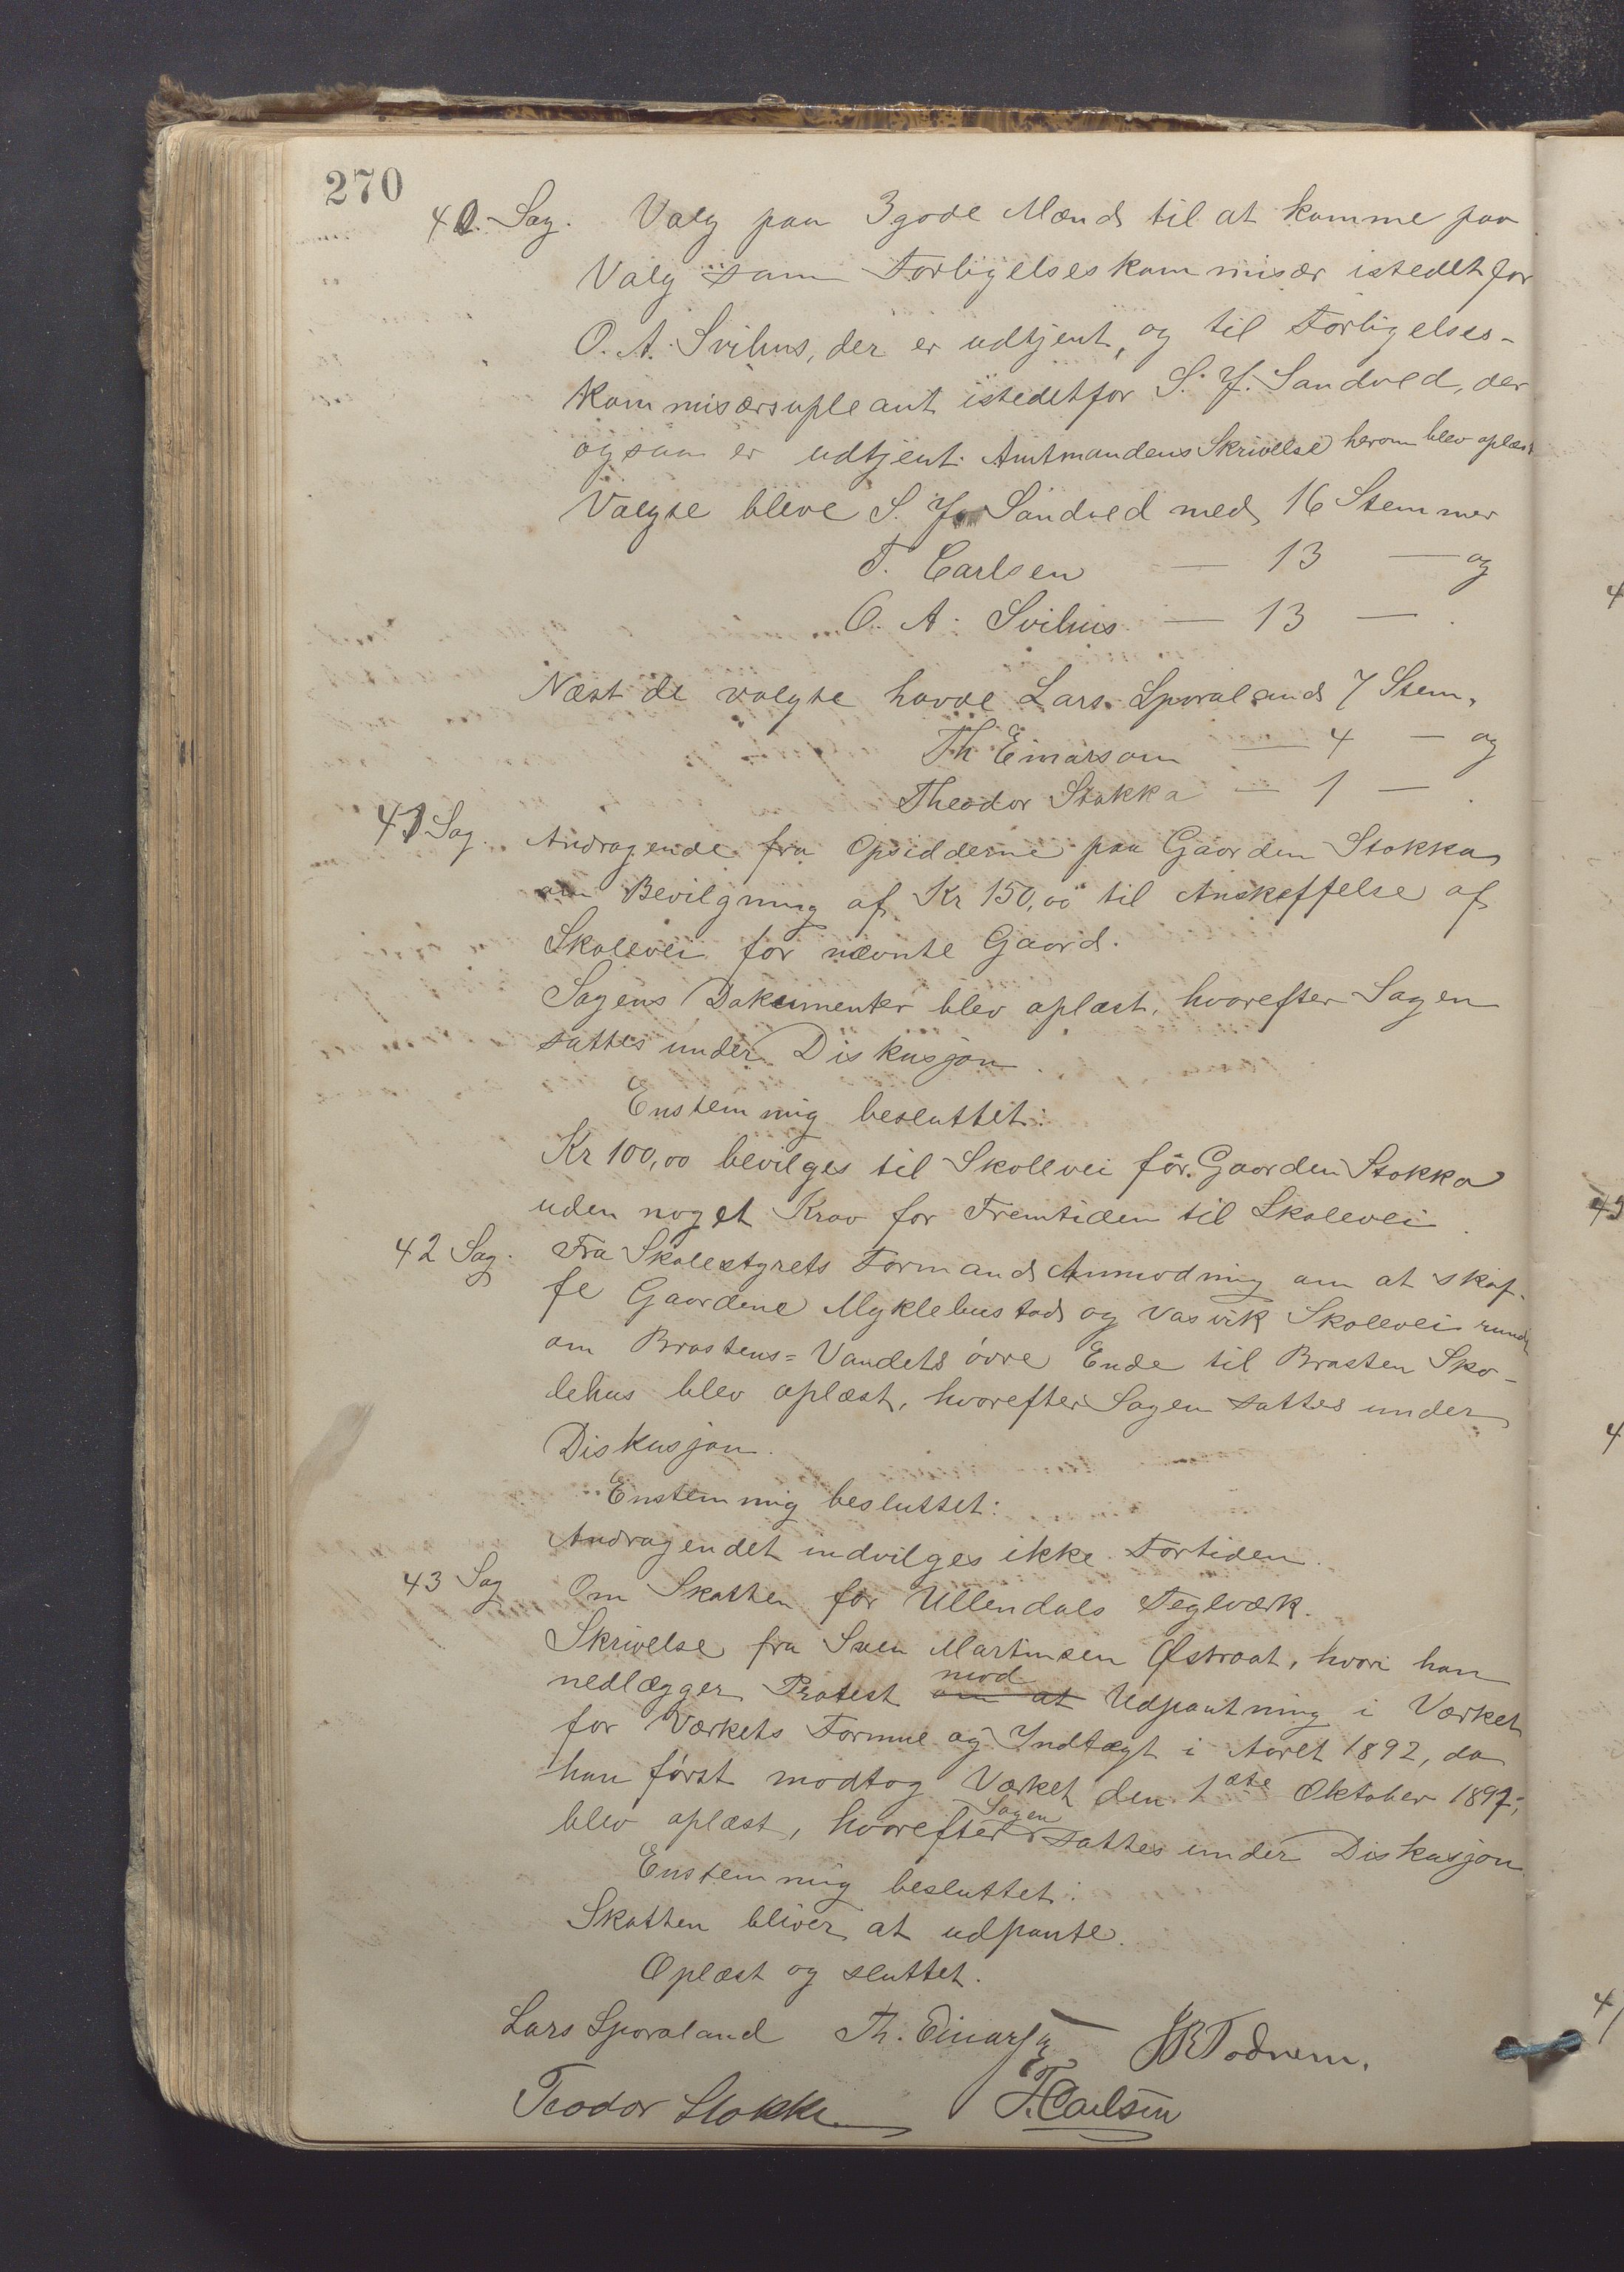 270
40. Sag. Valg paa 3 gode Mænd til at komme paa
Valg som Forligelseskommisær istedetfor
O. A. Svihus, der er udtjent, og til Forligelses-
kommisærsupleant istedetfor S. J. Sandved, der
ogsaa er udtjent. Amtmandens Skrivelse herom blev oplæst
Valgte bleve S. J. Sandved med 16 Stemmer
T. Carlsen — 13 — og
O. A. Svihus — 13 — .
Næst de valgte havde Lars Sporaland 7 Stem,
Th Einarson — 4 — og
Theodor Stokka — 1 — .
41 Sag. Andragende fra Opsidderne paa Gaarden Stokka
om Bevilgning af Kr 150,00 til Anskaffelse af
Skolevei for nævnte Gaard.
Sagens Dokumenter blev oplæst, hvorefter Sagen
sattes under Diskusjon.
Enstemmig besluttet:
Kr 100,00 bevilges til Skolevei for Gaarden Stokka
uden noget Krav for Fremtiden til Skolevei.
42 Sag. Fra Skolestyrets Formand Anmodning om at skaf-
fe Gaardene Myklebustad og Vasvik Skolevei rundt
om Brastens=Vandets øvre Ende til Brasten Sko-
lehus blev oplæst, hvorefter Sagen sattes under
Diskusjon.
Enstemmig besluttet:
Andragendet indvilges ikke Fortiden.
43 Sag Om Skatten for Ullendals Teglværk.
Skrivelse fra Sven Martinsen Østraat, hvori han
nedlægger Protest om at mod Udpantning i Værket
for Værkets Formue og Indtægt i Aaret 1892, da
han først modtog Værket den 1ste Oktober 1892;
blev oplæst, hvorefter Sagen sattes under Diskusjon
Enstemmig besluttet:
Skatten bliver at udpante.
Oplæst og sluttet.
Lars Sporaland Th. Einarsen Todnem.
Teodor Stokke T. Carlsen